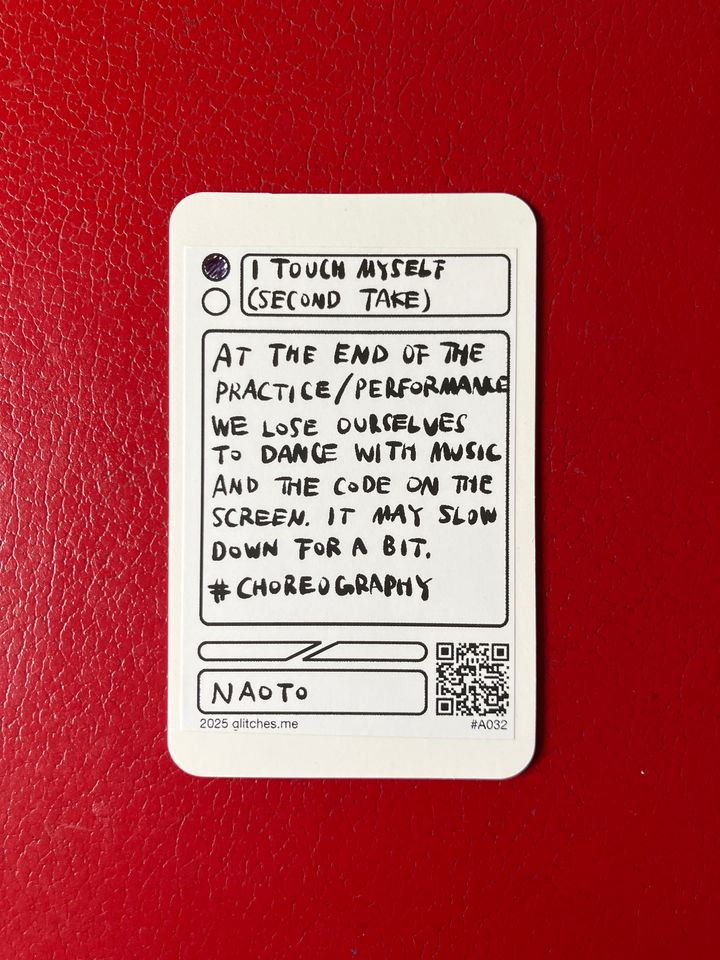 I TOUCH MYSELF
(SECOND TAKE)
AT THE END OF THE
PRACTICE/PERFORMANCE
WE LOSE OURSELVES
TO DANCE WITH MUSIC
AND THE CODE ON THE
SCREEN. IT MAY SLOW
DOWN FOR A BIT.
#CHOREOGRAPHY
NAOTO
2025 glitches.me
#A032